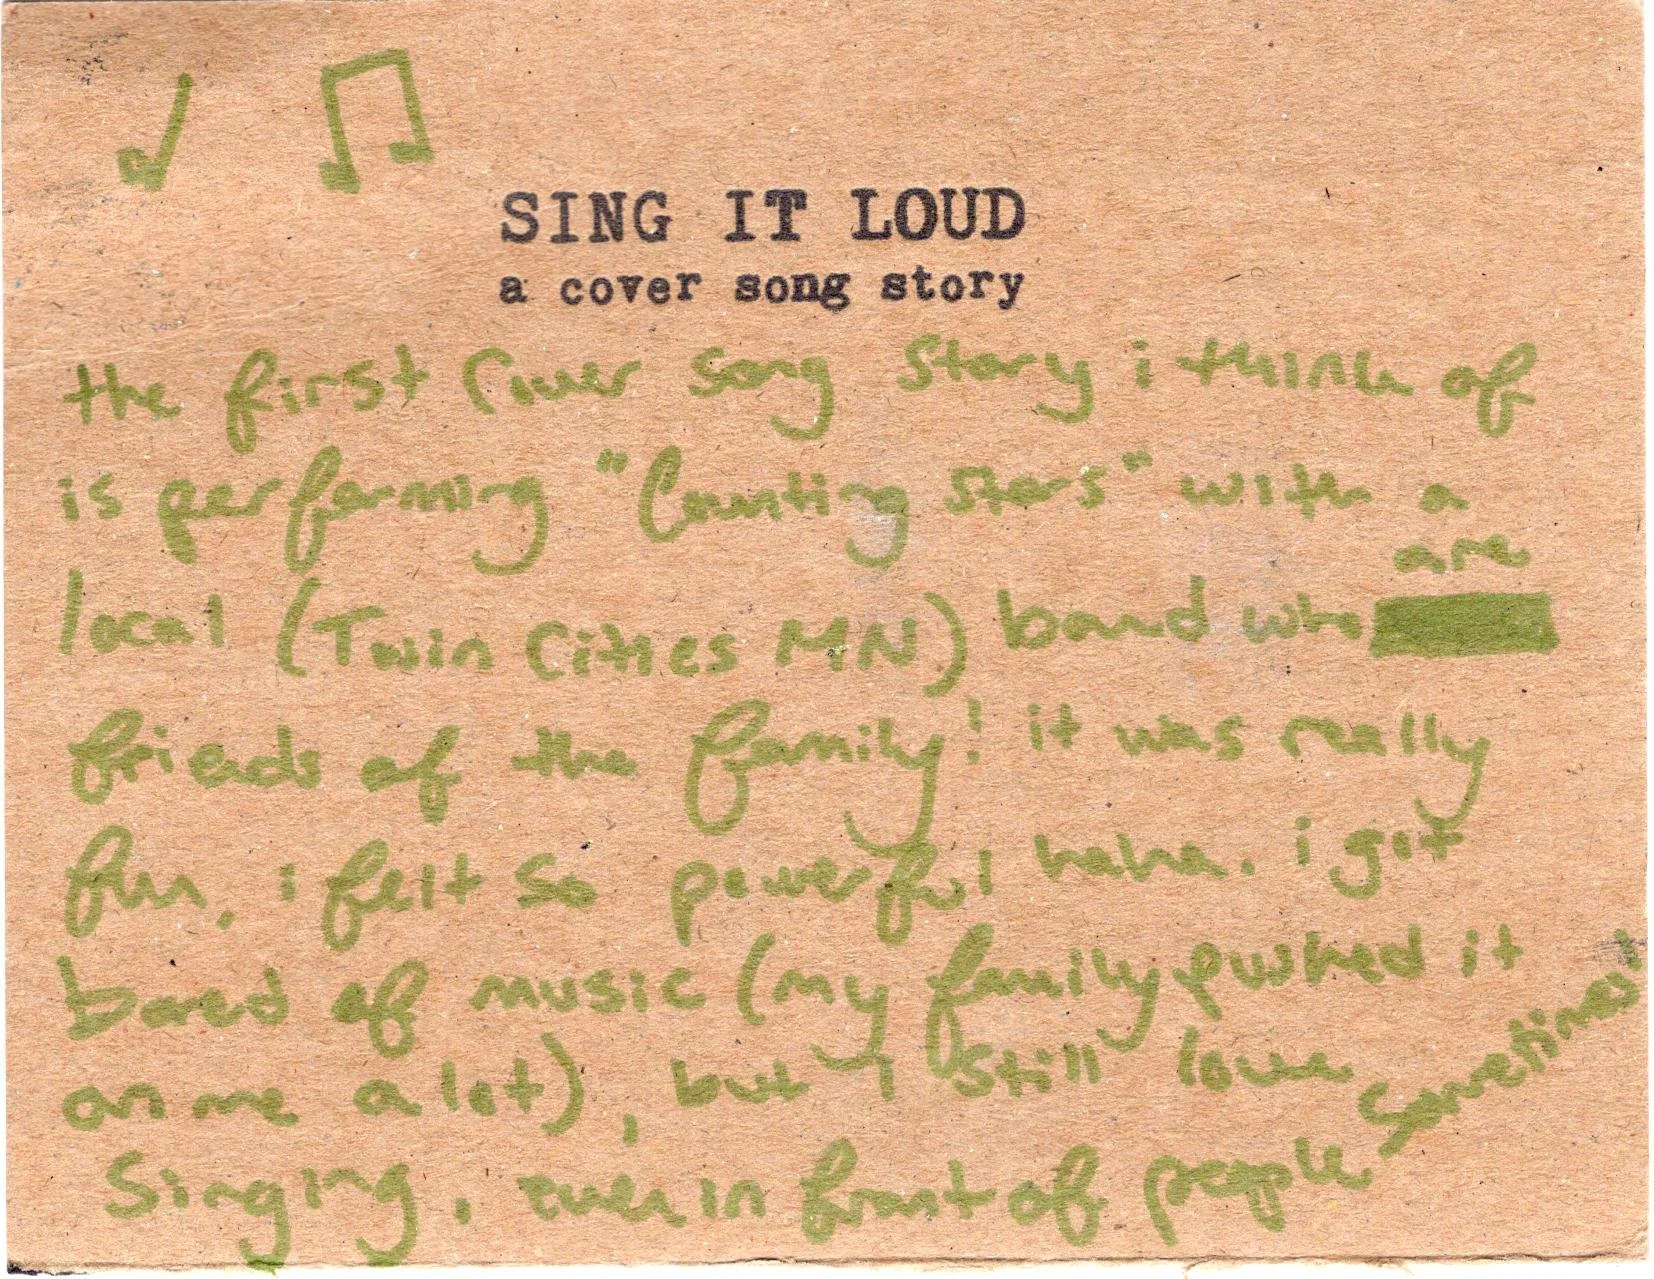 SING IT LOUD
a cover song story
the first cover song story i think of
is performing "Counting Stars" with a
local (Twin Cities MN) band who are
friends of the family! it was really
fun, i felt so powerful haha. i got
bored of music (my family pushed it
on me a lot), but i still love
singing, even in front of people sometimes!